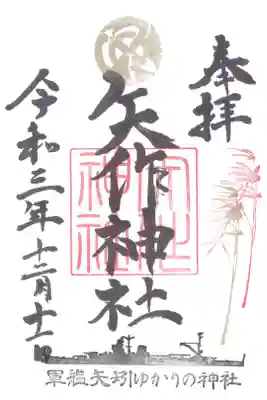 奉拝
矢作神社
令和三年十二月十一日
軍艦矢矧ゆかりの神社